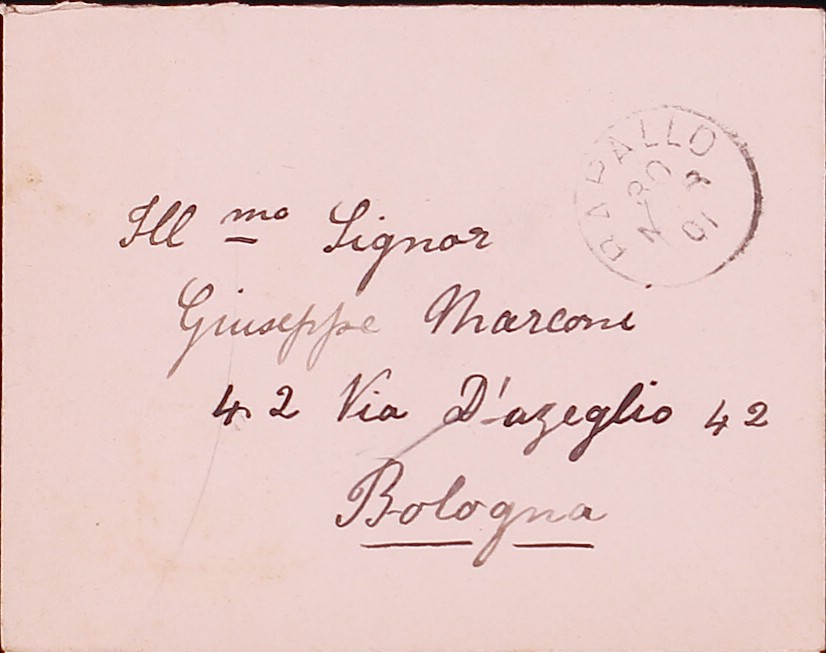 RAPALLO
Ill mo Signor
Giuseppe Marconi
42 Via D'azeglio 42
Bologna